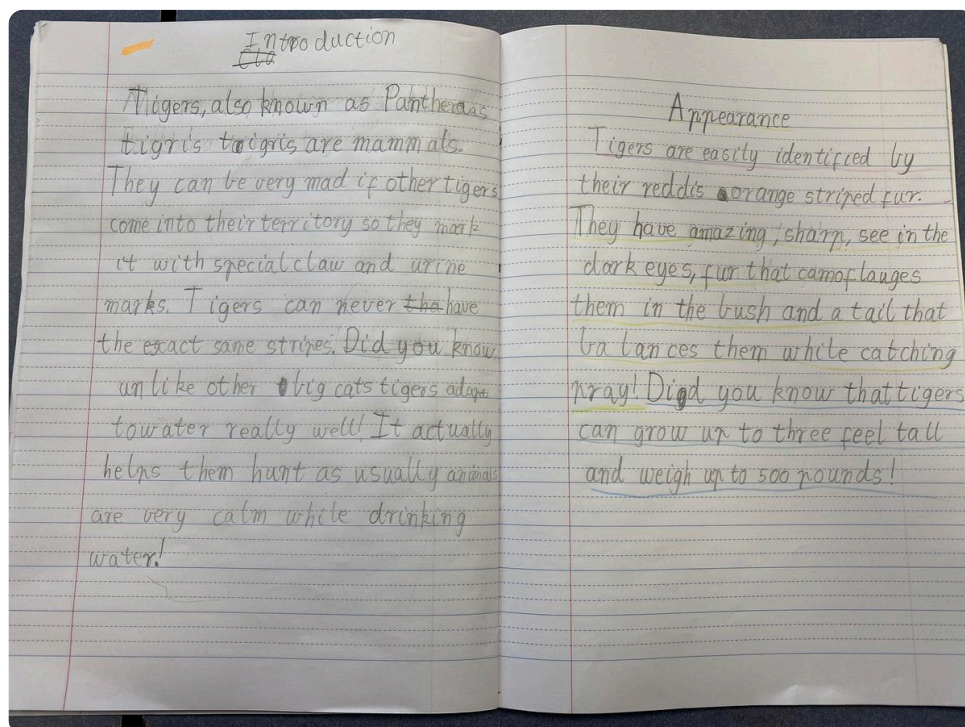 Introduction
Tigers, also known as Pantheraas
tigris tigris are mammals.
They can be very mad if other tigers
come into their territory so they mark
it with special claw and urine
marks. Tigers can never tha have
the exact same stripes. Did you know
unlike other big cats tigers adapt
to water really well! It actually
helps them hunt as usually animals
are very calm while drinking
water!
Appearance
Tigers are easily identified by
their reddis orange striped fur.
They have amazing, sharp, see in the
dark eyes, fur that camoflauges
them in the bush and a tail that
balances them while catching
pray! Did you know that tigers
can grow up to three feel tall
and weigh up to 500 pounds!